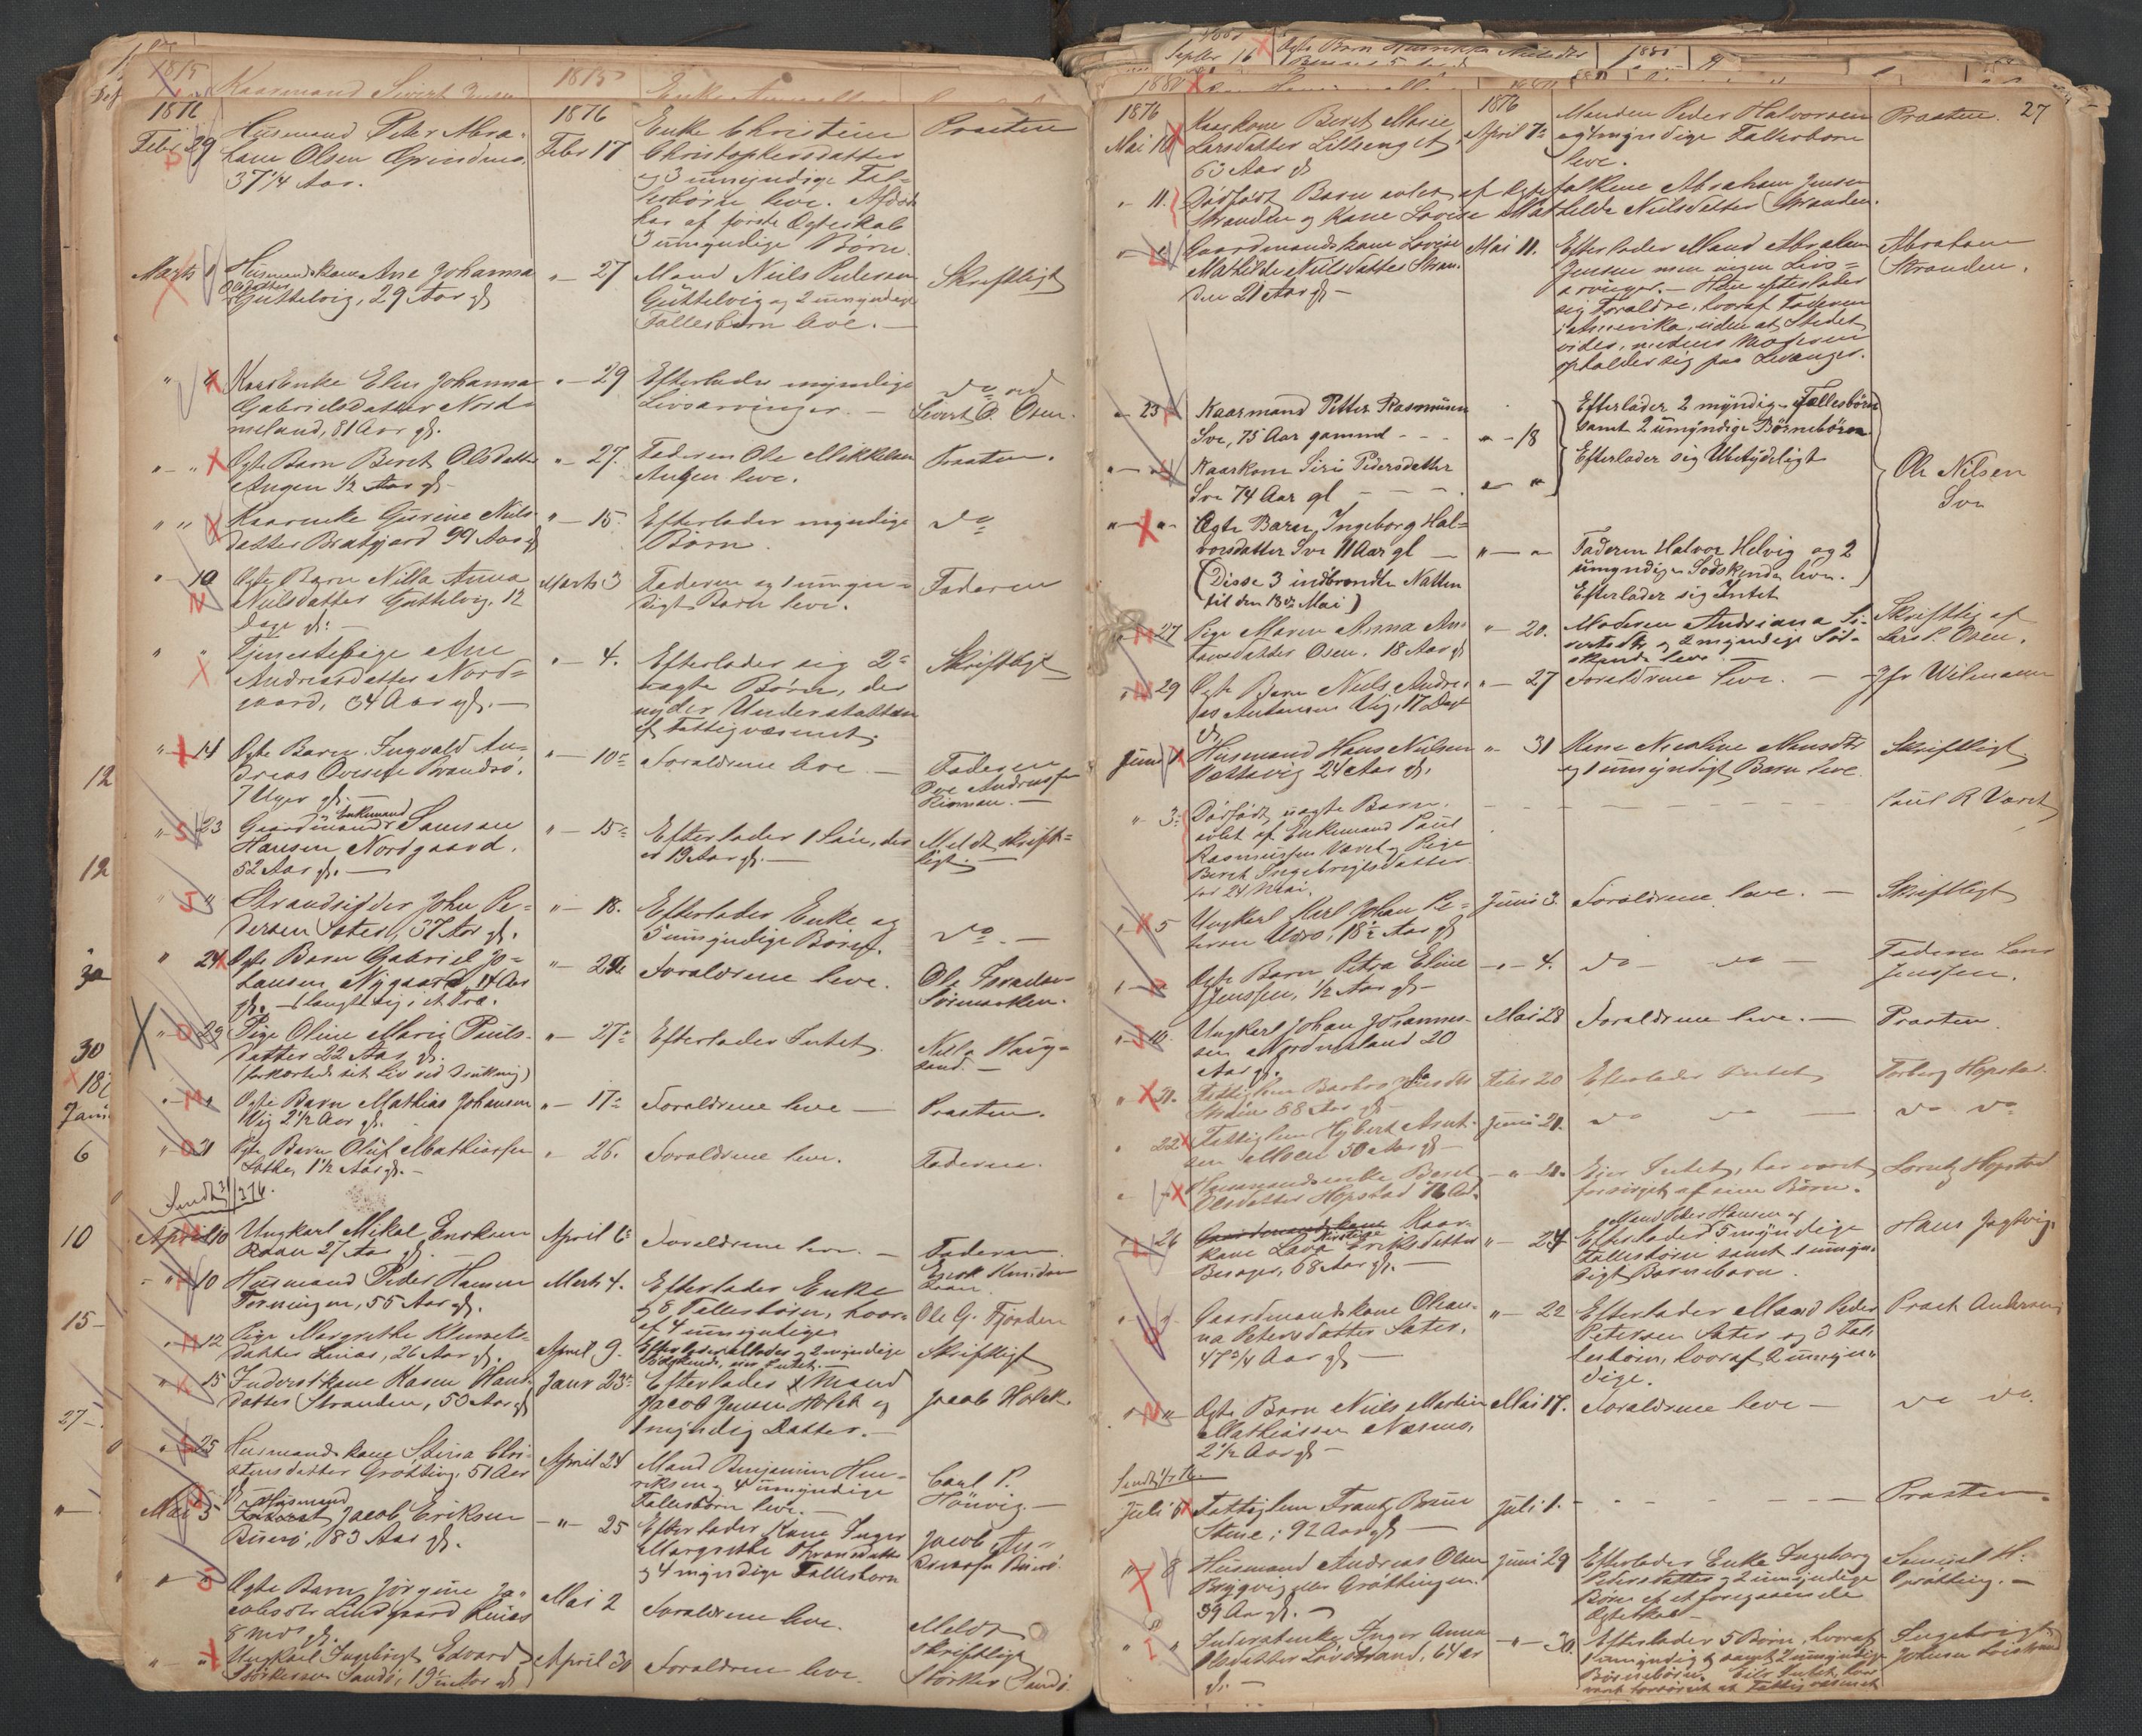 1876
Febr 29
Husmand Peter Abra-
ham Olsen Grindnes
37 1/4 Aar.
1876
Febr 17
Enke Christine
Christophersdatter
og 3 umyndige Fæl-
lesbørn leve. Afdøde
har af første Ægteskab
3 umyndige Børn.
Præsten
Marts
Husmandskone Ane Johanna
Guttelvig, 29 Aar gl
" - 27
Mand Niels Pedersen
Guttelvig og 2 umyndige
Fællesbørn leve. -
Skriftligt
Kaarenke Elen Johanna
Gabrielsdatter Nord-
meland, 81 Aar gl.
" - 29
Efterlader myndige
Livsarvinger. -
do ved
Sivert O. Osen.
Ægte Barn Beret Olsdatter
Angen 1/2 Aar gl
" - 27.
Faderen Ole Mikkelsen
Angen leve.
Præsten.
Kaarenke Gurine Niels-
datter Bratgjerd 99 Aar gl
" - 15.
Efterlader myndige
Børn.
do
" 10
Ægte Barn Nilla Anna
Nielsdatter Guttelvig, 12
Dage gl. -
Marts 3
Faderen og 1 umyn-
digt Barn leve.
Faderen
" "
Tjenestepige Ane
Andreasdatter Nord-
gaard, 34 Aar gl. -
" - 4.
Efterlader sig 2
uægte Børn, der
nyder Understøttelse
af Fattigvæsenet.
Skriftligt
" 14
Ægte Barn Ingvald An-
dreas Ovesen Brandsø.
7 Uger gl. -
" - 10
Forældrene leve -
Faderen
Ove Andreassen
" 23
Enkemand
Gaardmand Samson
Hansen Nordgaard.
52 Aar gl. -
" - 15
Efterlader 1 Søn, der
er 19 Aar gl. -
Meldt skrift-
ligt. -
" "
Strandsidder John Pe-
dersen Sæter, 37 Aar gl.
" - 18.
Efterlader Enke og
5 umyndige Børn.
do. -
" 24
Ægte Barn Gabriel Jo-
hansen Nygaard, 14 Aar
gl. - slaught sig i et Træ.
Forældrene leve.
" 29
Pige Oline Marie Pauls-
datter 22 Aar gl.
(forkortede sit Liv ved Drukning)
" - 27
Efterlader Intet
Niels Haug-
sand. -
Ægte Barn Mathias Johansen
Vig 2 1/2 Aar gl.
" - 17
Forældrene leve -
Præsten.
" 31
Ægte Barn Oluf Mathiassen
1 1/2 Aar gl. -
" 26.
Forældrene leve.
Faderen.
Sendt 31/3 76.
April 10
Ungkarl Mikal Eriksen
Raan 27 Aar gl.
April 6
Forældrene leve. -
Faderen.
Erik Knudsen
Raan.
" 10
Husmand Peder Hansen
Terningen, 55 Aar gl.
Marts 4.
Efterlader Enke
og 8 Fællesbørn, hvor-
af 4 umyndige
Ole G. Fjorden
" 12
Pige Margrethe Klemets-
datter Linæs, 26 Aar gl.
April 9.
Skriftligt
" 15
Inderstkone Karen Hans-
datter Stranden, 50 Aar gl
Janr 23
Efterlader Mand
Jacob Jensen Holck og
1 myndig Datter. -
Jacob Holck.
" 25
Husmandskone Stina Chri-
stensdatter Grøtting, 51 Aar
gl
April 24
Mand Benjamin Hen-
riksen og 4 umyndige
Fællesbørn leve. -
Carl P.
Høuvig. -
Mai 5
Husmand
Jacob Eriksen
Buerø, 83 Aar gl.
- " - 25
Efterlader Kone Inger
Margrethe
og 4 myndige Fællesbørn
Jacob An-
dreasen Buerø.
Ægte Barn Jørgine Ja-
cobsdtr Lindgaard Linæs
8 Mdr gl.
Mai 2
Forældrene leve.
Meldt
skriftlig
Ungkarl Ingebrigt Edvard
Størkersen Sandø, 19 1/2 Aar gl
April 30
Forældrene leve.
Størker Sandø.
27
1876
Mai 10
Kaarkone Beret Marie
Larsdatter Lillenget
63 Aar gl
1876
April 7
Manden Peder Halvorsen
og myndige Fællesbørn
leve.
Præsten.
" 11.
Dødfødt Barn avlet af Ægtefolkene Abraham Jensen
Stranden og Kone Lovise Mathilde Nielsdatter Stranden.
Gaardmandskone Lovise
Mathilde Nielsdatter Stran-
den 21 Aar gl -
Mai 11.
Efterlader Mand Abraham
Jensen men ingen Livs-
arvinger. - Hun efterlader
sig Forældre, hvoraf Faderen
i Amerika, uden at Stedet
vides, medens Moderen
opholder sig paa Levanger.
Abraham
Stranden.
" 23
Kaarmand Petter Rasmusen
Sve, 75 Aar gammel - - -
" - 18
Efterlader 2 myndige Fællesbørn
samt 2 umyndige Børnebørn
Kaarkone Siri Pedersdatter
Sve 74 Aar gl - - -
" "
Efterlader sig Ubetydeligt
Ole Nilsen
Sve
Ægte Barn, Ingeborg Hal-
vorsdatter Sve 11 Aar gl -
" - "
Faderen Halvor Helvig og 2
umyndige Sødskende leve.
(Disse 3 indbrændte Natten
til den 18de Mai)
Efterlader sig Intet
" 27
Pige Maren Anna An-
tonsdatter Osen. 18 Aar gl
" - 20.
Moderen Andriana Si-
vertsdtr og 2 myndige Sød-
skende leve. -
Skriftlig af
Lars P. Osen.
" 29
Ægte Barn Niels Andre-
as Antonsen Vig, 17 Dage
gl
" - 27
Forældrene leve. -
Jfr Wilmann
Juni 1
Husmand Hans Nielsen
Vættavig 24 Aar gl.
" 31
Kone Nicoline Monsdtr
og 1 umyndigt Barn leve
Skriftligt
" 3
Dødfødt uægte Barn,
avlet af Enkemand Paul
Rasmussen Været og Pige
Beret Ingebrigtsdatter.
fød 24 Mai.
- - - - - - - -
Paul R Været
" 5
Ungkarl Johan Pe-
tersen 18 1/2 Aar gl
Juni 3.
Forældrene leve. -
Skriftligt
Ægte Barn Petra Eline
Jenssen, 1/2 Aar gl -
- " - 4.
do - do -
Faderen Lars
Jenssen.
" 10
Ungkarl Johan Johannes-
sen Nordmeland 20
Aar gl.
Mai 28
Forældrene leve. -
Præsten.
" 21.
Fattiglem Barbro
88 Aar gl -
Febr 20
Efterlader Intet
Torberg Hopstad.
" 22
Fattiglem Hybert Arnt-
sen Moen 50 Aar gl -
Juni 21.
do do -
do do.
Husmandsenke Beret
Olsdatter Hopstad 76 Aar.
- " - 20.
Ejer Intet, har været
forsørget af sine Børn.
Lorntz Hopstad
" 26
Kaar-
kone Lava Kirstine Eriksdatter
Besager, 68 Aar gl. -
" - 24
Mand Peder Hansen og
Efterlader 5 myndige
Fællesbørn samt 1 umyn-
digt Barnebarn.
Hans Jøgtvig.
Gaardmandskone Olean-
na Petersdatter Sæter.
47 3/4 Aar gl -
" - 22
Efterlader Mand Peder
Petersen Sæter og 3 Fæl-
lesbørn, hvoraf 2 umyn-
dige.
Præst Andersen
Ægte Barn Niels Martin
Mathiassen Næsmo,
2 1/2 Aar gl -
Mai 17.
Forældrene leve -
do do.
Juli 6
Fattiglem Frantz Bruun
Stene; 92 Aar gl -
Juli 1.
- - - - - -
Præsten.
" 8
Husmand Andreas Olsen
Bryggvig eller Grøttingen.
39 Aar gl. -
Juni 29
Efterlader Enke Ingeborg
Pedersdatter og 2 umyndige
Børn af et foregaaende
Ægteskab -
Samuel H.
Grøtting. -
" "
Inderstenke Inger Anna
Olsdatter Løvstrand, 64 Aar
gl. -
- " - 30.
Efterlader 5 Børn, hvoraf
1 umyndig samt 2 umyndige
Børnebørn. Ejer Intet, har
været forsørget af Fattigvæsenet
Ingebrigt
Johnsen